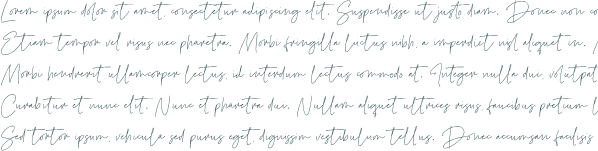 Lorem ipsum dolor sit amet, consectetur adipiscing elit. Suspendisse ut justo diam. Donec non co
Etiam tempor vel risus nec pharetra. Morbi fringilla luctus nibh, a imperdiet nisl aliquet in.
Morbi hendrerit ullamcorper lectus, id interdum lectus commodo at. Integer nulla dui, volutpat
Curabitur et nunc elit. Nunc et pharetra dui. Nullam aliquet ultrices risus, faucibus pretium l
Sed tortor ipsum, vehicula sed purus eget, dignissim vestibulum tellus. Donec accumsan facilisis